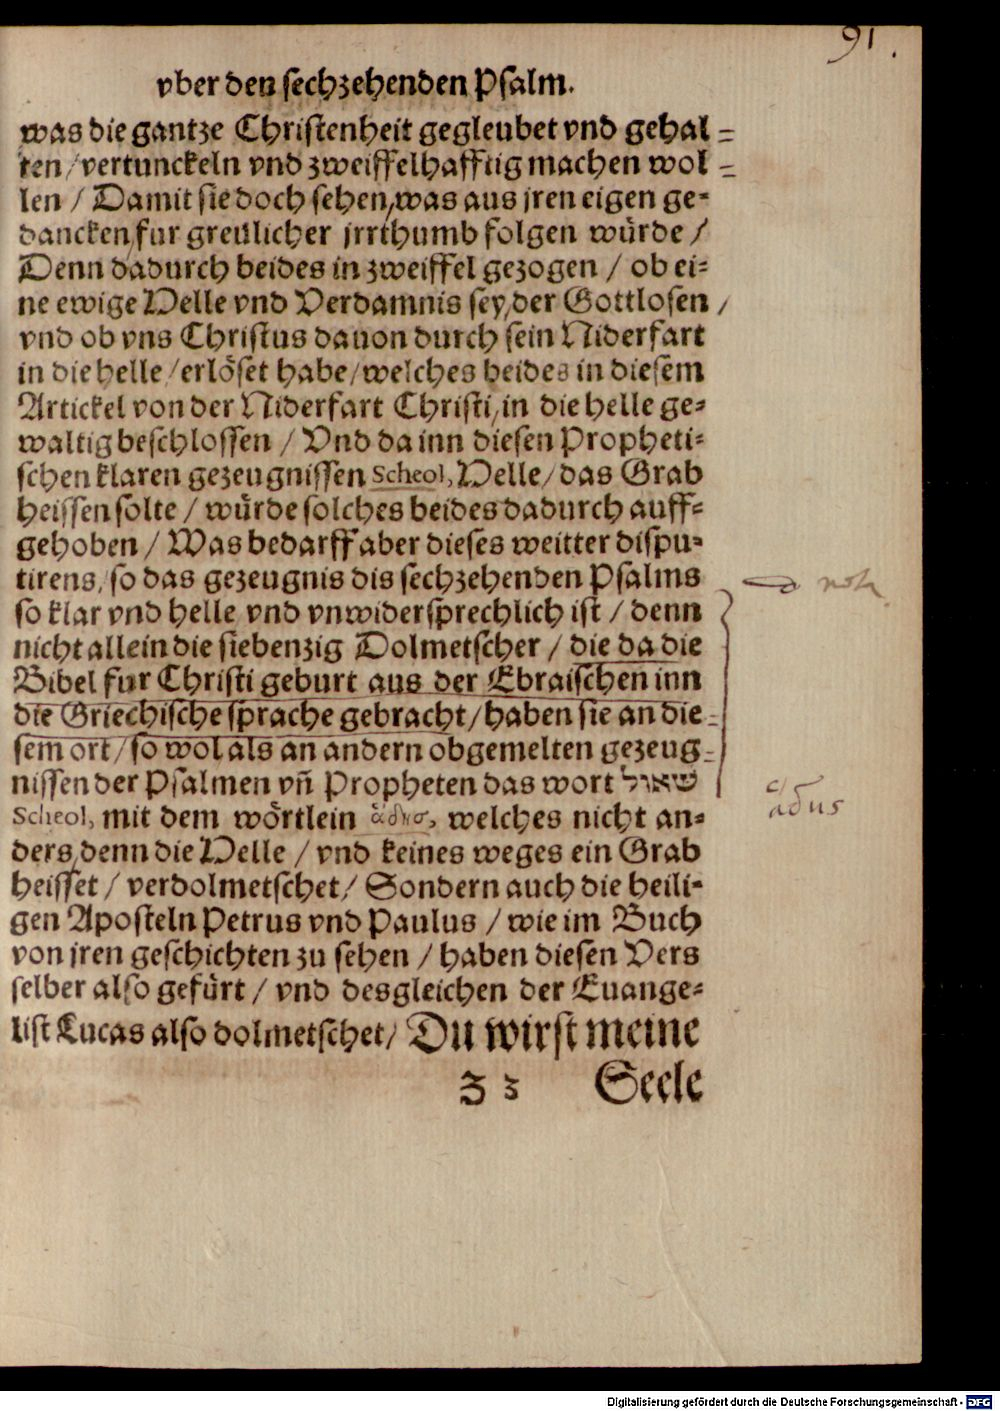 91.
vber den sechzehenden Psalm.
was die gantze Christenheit gegleubet vnd gehal=
ten/vertunckeln vnd zweiffelhafftig machen wol=
len / Damit sie doch sehen,was aus jren eigen ge=
dancken,fur greulicher jrrthumb folgen würde /
Denn dadurch beides in zweiffel gezogen / ob ei=
ne ewige Helle vnd Verdamnis sey,der Gottlosen /
vnd ob vns Christus dauon durch sein Niderfart
in die helle/erlöset habe/welches beides in diesem
Artickel von der Niderfart Christi,in die helle ge=
waltig beschlossen / Vnd da inn diesen Propheti=
schen klaren gezeugnissen Scheol, Helle/das Grab
heissen solte / würde solches beides dadurch auff=
gehoben / Was bedarff aber dieses weitter dispu=
tirens,so das gezeugnis dis sechzehenden Psalms
nota
so klar vnd helle vnd vnwidersprechlich ist / denn
nicht allein die siebenzig Dolmetscher / die da die
Bibel fur Christi geburt aus der Ebraischen inn
die Griechische sprache gebracht/haben sie an die=
sem ort/so wol als an andern obgemelten gezeug=
nissen der Psalmen vñ Propheten das wort שאול
Scheol, mit dem wörtlein ᾅδης, welches nicht an=
adus
ders,denn die Helle / vnd keines weges ein Grab
heisset / verdolmetschet/ Sondern auch die heili=
gen Aposteln Petrus vnd Paulus / wie im Buch
von jren geschichten zu sehen / haben diesen Vers
selber also gefürt / vnd desgleichen der Euange=
list Lucas also dolmetschet/ Du wirst meine
Z 3 Seele
Digitalisierung gefördert durch die Deutsche Forschungsgemeinschaft - DFG